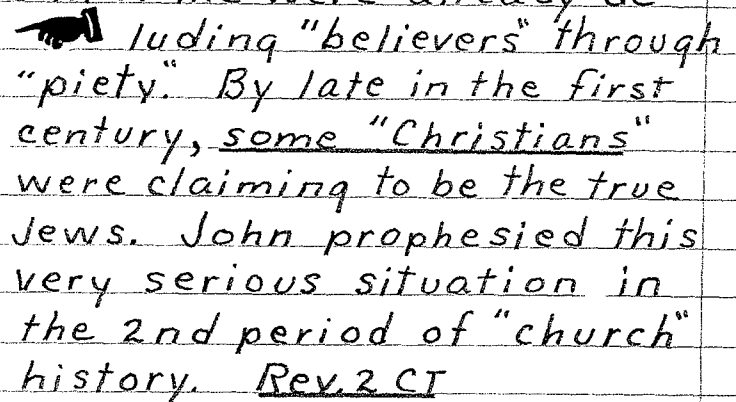 luding "believers" through
"piety." By late in the first
century, some "Christians"
were claiming to be the true
Jews. John prophesied this
very serious situation in
the 2nd period of "church"
history. Rev. 2 CT